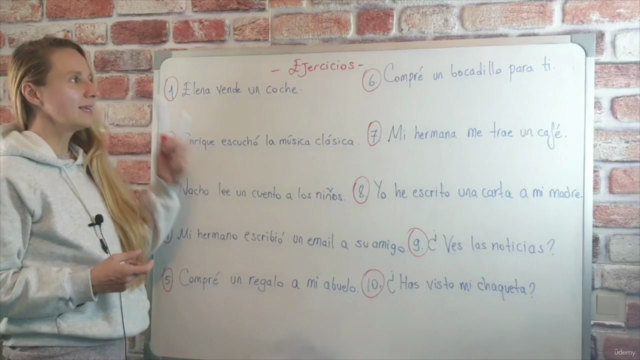 - Ejercicios -
1 Elena vende un coche.
Enrique escuchó la música clásica.
Nacho lee un cuento a los niños.
Mi hermano escribió un email a su amigo.
5 Compré un regalo a mi abuelo.
6 Compré un bocadillo para ti.
7 Mi hermana me trae un café.
8 Yo he escrito una carta a mi madre.
9 ¿Ves las noticias?
10. ¿Has visto mi chaqueta?
ûdemy